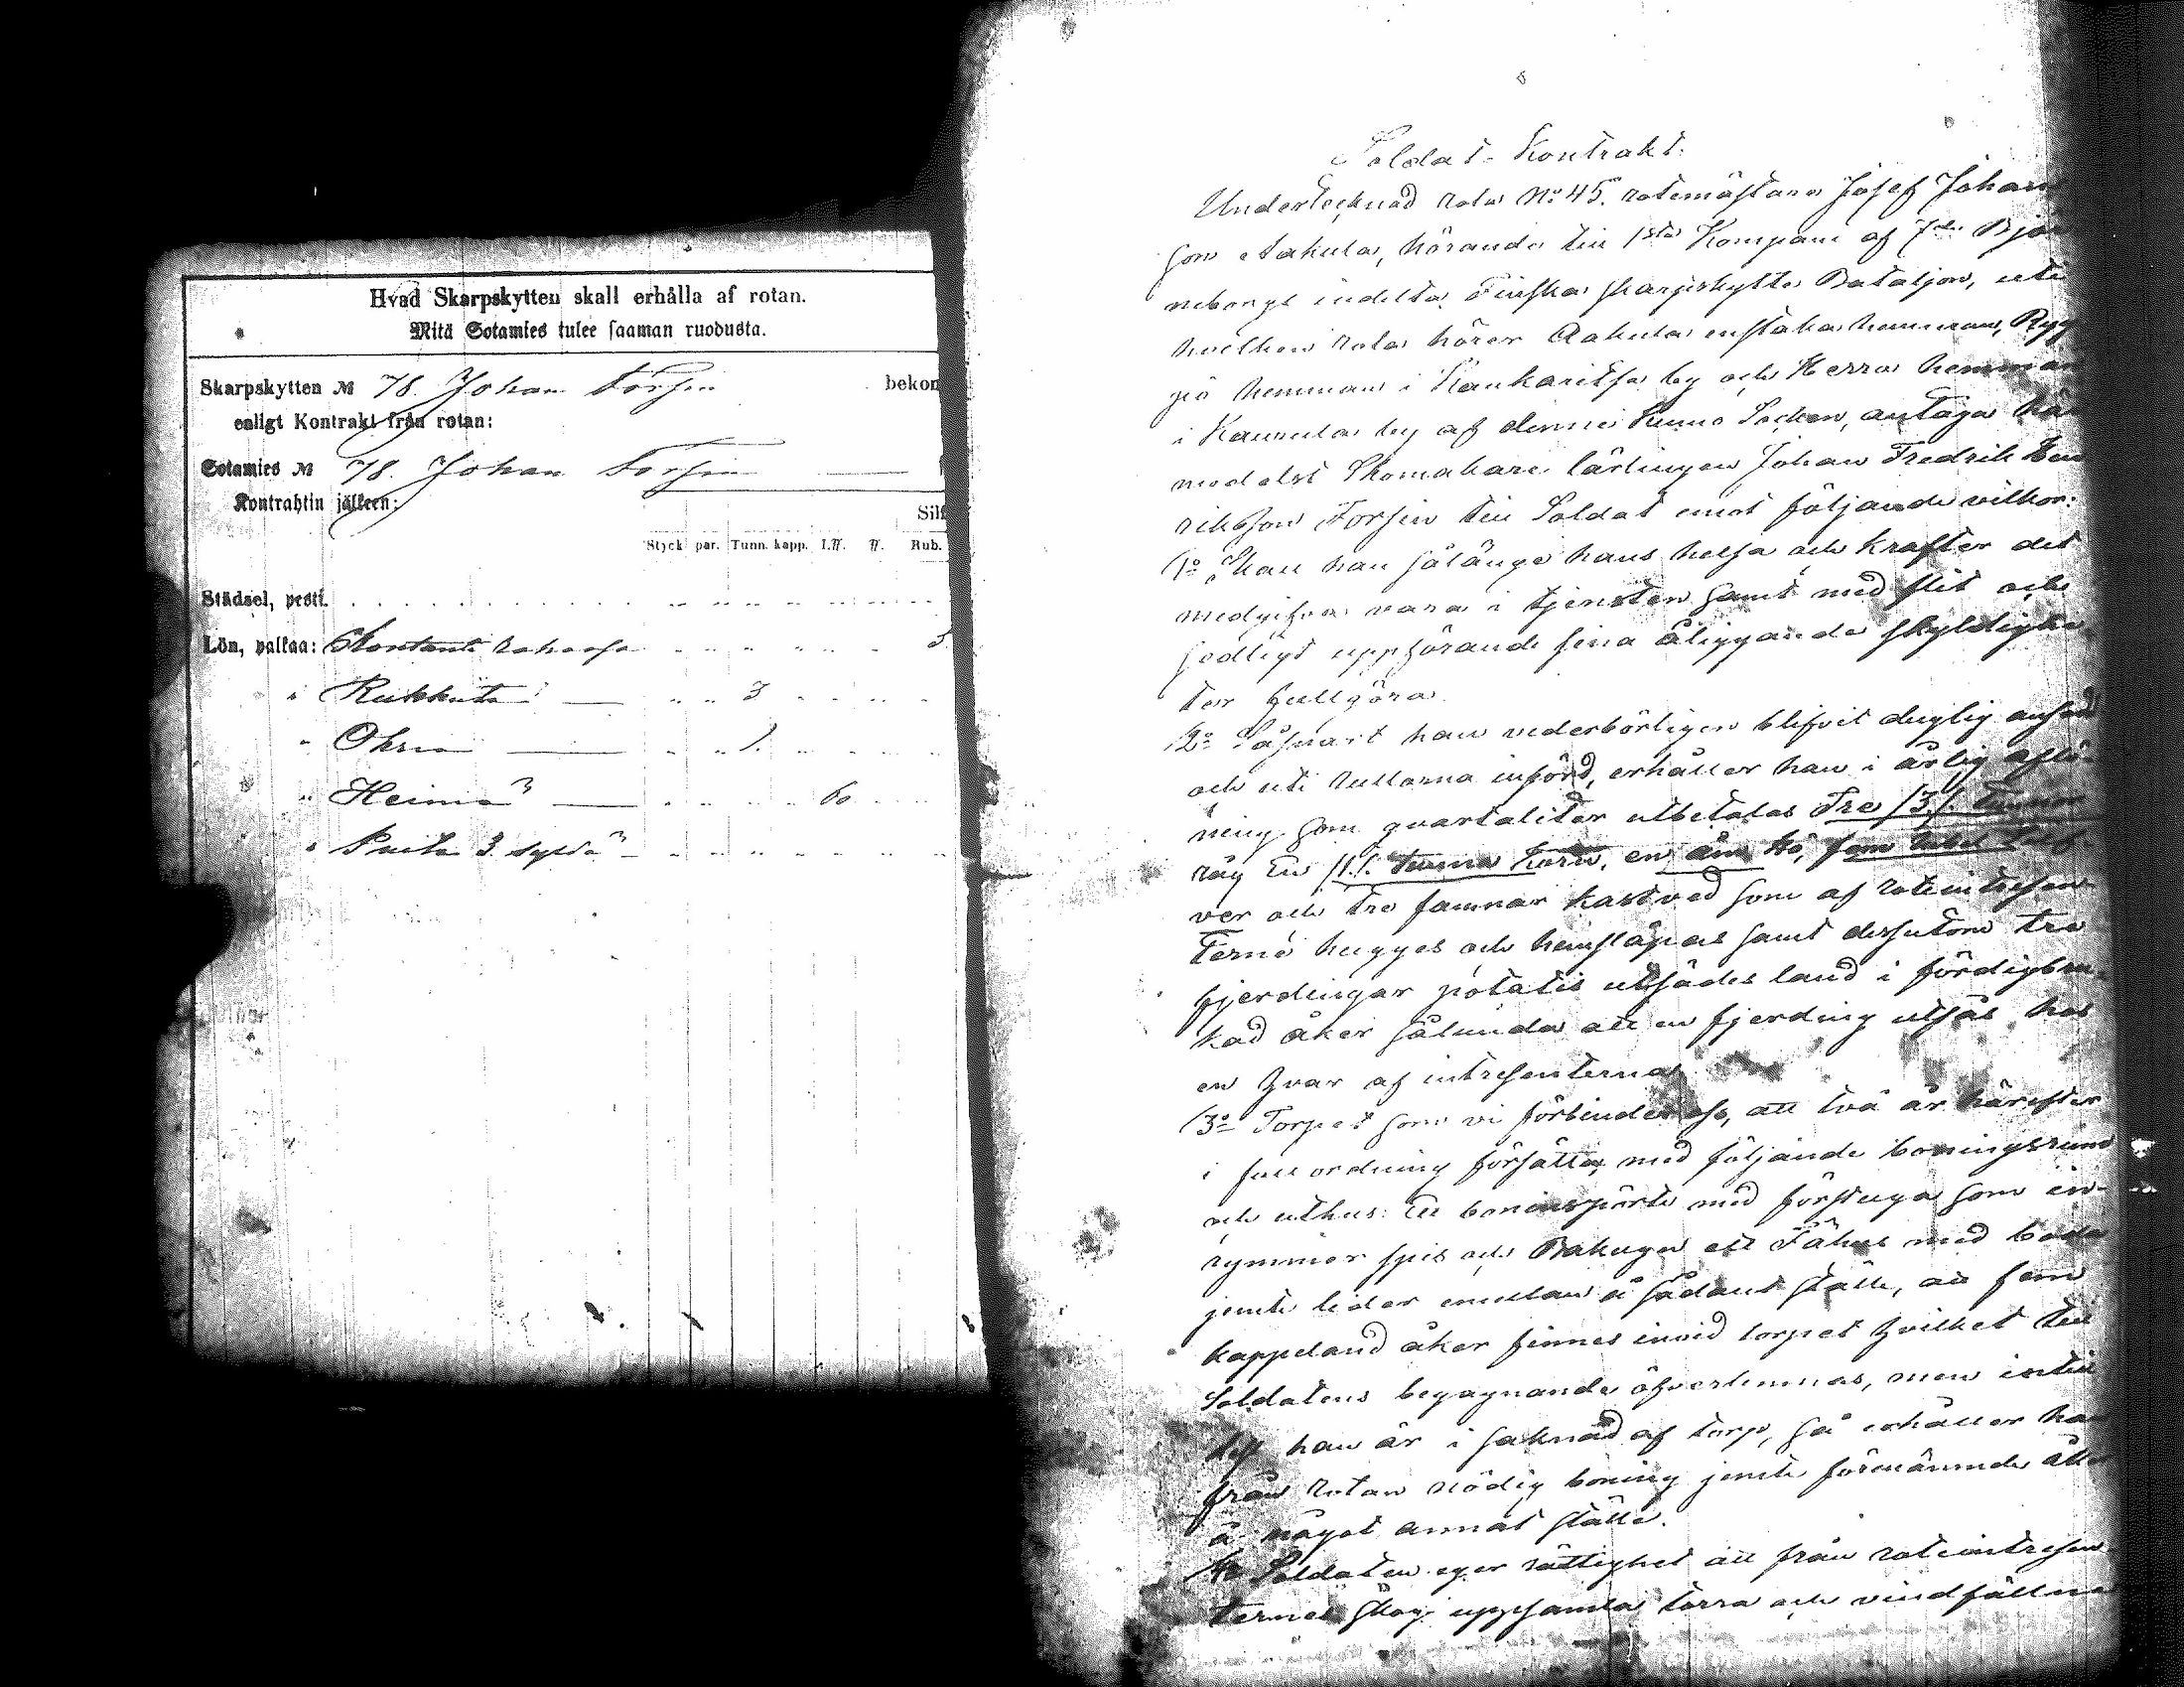 Hvad Skarpskytten skall erhålla af rotan.
Mitä Sotamies tulee saaman ruodusta.
Skarpskytten № 78. Johan Forsin bekom
enligt Kontrakt från rotan:
Sotamies № 78. Johan Forsin
Kontrahtin jälkeen:
Silf
Styck par. Tunn. kapp. L.℔. ℔. Rub.
Städsel, pesti.
Lön, palkaa: Kontant rahassa 5
" Rukkiita 3
" Ohria 1.
" Heiniä 60
" Puita 3. syldä
Soldat-Kontrakt.
Undertecknad rota No 45. rotemästare Josef Johans
son Aakula, hörande till 1sta Kompani af 7de Björ
neborgs indelta Finska skarpskytte Bataljon, uti
hvilken rota hörer Aakula enstaka hemman,
pä hemman i Kankaritsa by och Herra hemman
i Kannula by af denne Socken, antaga här
medelst Skomakare lärlingen Johan Fredrik Hen
rikson Forsin till Soldat emot följande vilkor:
1o Skall han sålänge hans helsa och krafter det
medgifva vara i tjensten samt med flit och
sedligt uppförande sina åliggande skyldighe
ter fullgöra.
2o Såsnart han vederbörligen blifvit duglig ansedd
och uti rullorna införd, erhåller han i årlig aflö-
ning som qvartaliter utbetalas Tre /3/. Tunnor
råg En /1./. tunna Korn, en åm Hö, fem rubel Silf-
ver och tre famnar kastved som af roteintressen-
terne hugges och hemsläpas samt dessutom tre
fjerdingar potatis utsädes land i färdigbru-
kad åker sålunda att en fjerding utsås hos
en hvar af intressenterna.
3o Torpet som vi förbinder oss, att två år härefter
i full ordning försätta, med följande boningsrum
och uthus: En boningspörte med förstuga som in-
rymmer spis och Bakugn ett Fähus med boda
jemte lider emellan å sådant ställe, att fem
kappeland åker finnes invid torpet hvilket till
Soldatens begagnande öfverlemnas, men intill
dess han är i saknad af torp, så erhåller han
från rotan nödig boning jemte förenämnde åker
å något annat ställe.
4o Soldaten eger rättighet att från roteintressen
ternes skog uppsamla torra och vindfällen